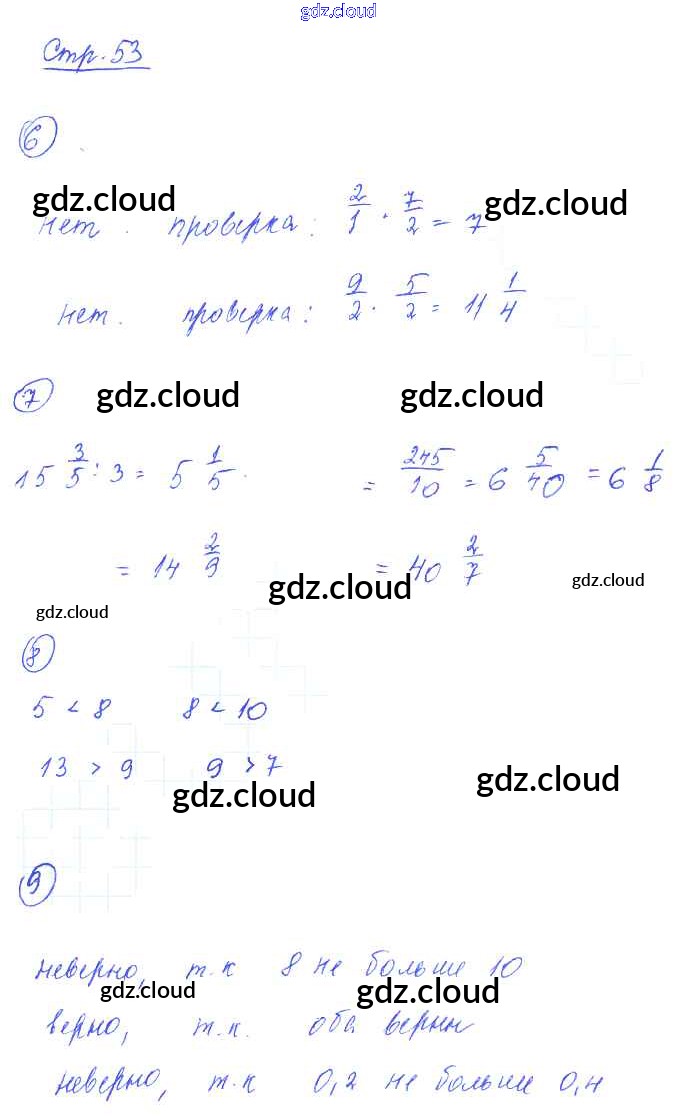 gdz.cloud
Стр. 53
6
gdz.cloud gdz.cloud
нет. проверка: 2/1 · 7/2 = 7
нет. проверка: 9/2 · 5/2 = 11 1/4
7 gdz.cloud gdz.cloud
15 3/5 : 3 = 5 1/5. = 245/10 = 6 5/40 = 6 1/8
= 14 2/9 = 40 2/7
gdz.cloud gdz.cloud gdz.cloud
8
5 < 8 8 < 10
13 > 9 9 > 7
gdz.cloud gdz.cloud
9
неверно, т.к 8 не больше 10
gdz.cloud gdz.cloud
верно, т.к. оба верны
неверно, т.к 0,2 не больше 0,4